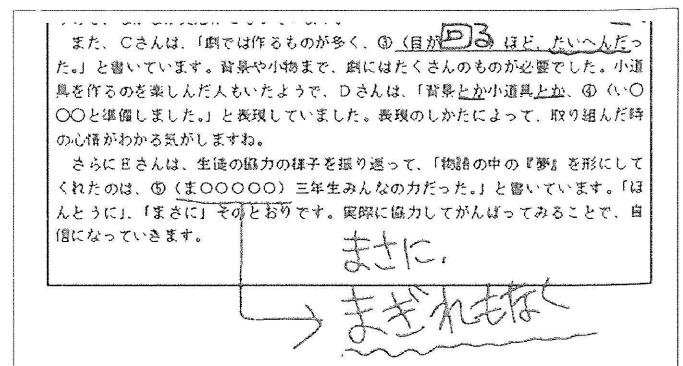 また、Cさんは、「劇では作るものが多く、③（目が回る）ほど、たいへんだっ
た。」と書いています。背景や小物まで、劇にはたくさんのものが必要でした。小道
具を作るのを楽しんだ人もいたようで、Dさんは、「背景とか小道具とか、④（い○
○○と準備しました。」と表現していました。表現のしかたによって、取り組んだ時
の心情がわかる気がしますね。
さらにEさんは、生徒の協力の様子を振り返って、「物語の中の『夢』を形にして
くれたのは、⑤（ま○○○○○）三年生みんなの力だった。」と書いています。「ほ
んとうに」、「まさに」そのとおりです。実際に協力してがんばってみることで、自
信になっていきます。
まさに、
まぎれもなく